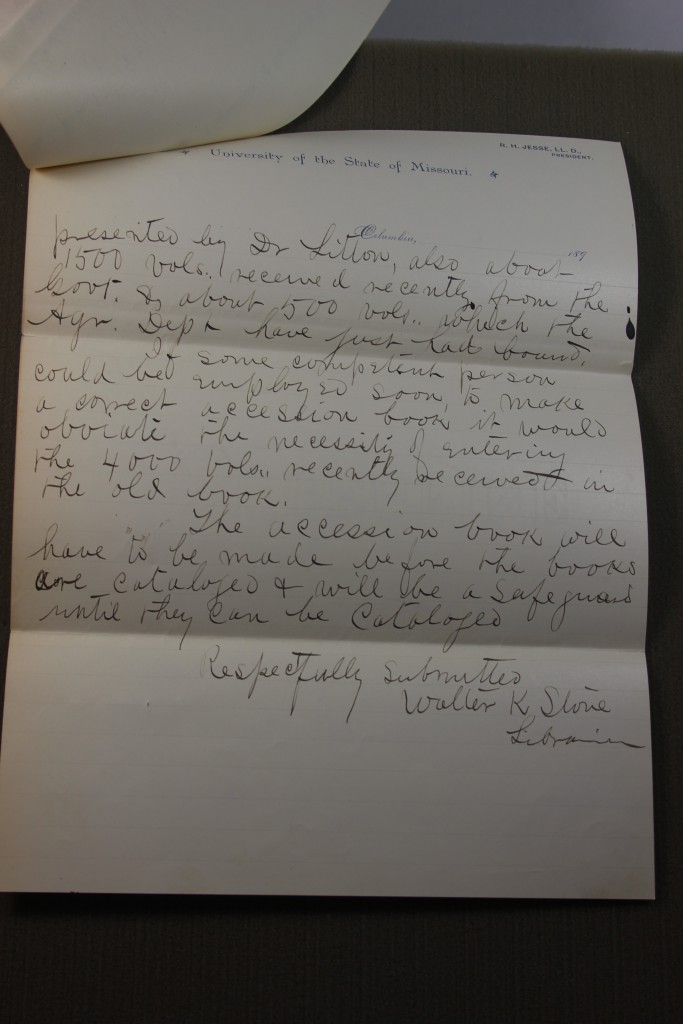 R. H. JESSE, LL. D.,
PRESIDENT.
University of the State of Missouri.
Columbia, 189
presented by Dr Litton, also about
1500 vols., received recently from the
Govt. & about 500 vols.. which the
Agr. Dept have just had bound.
If some competent person
could be employed soon, to make
a correct accession book it would
obviate the necessity of entering
the 4000 vols.. recently received in
the old book.
The accession book will
have to be made before the books
are cataloged & will be a safeguard
until they can be cataloged
Respectfully submitted
Walter K Stone
Librarian